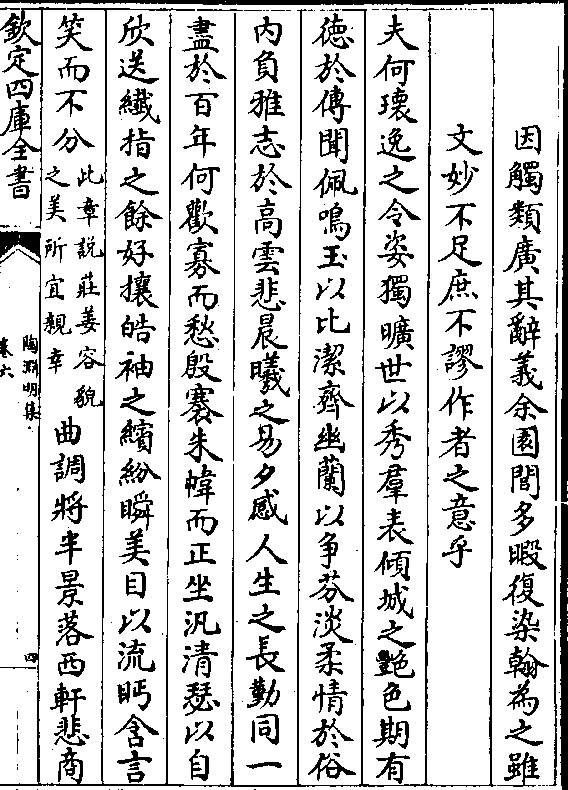 因觸類廣其辭義余園閭多暇復染翰為之雖
文妙不足庶不謬作者之意乎
夫何瓌逸之令姿獨曠世以秀羣表傾城之艷色期有
徳於傳聞佩鳴玉以比潔齊幽蘭以争芬淡柔情於俗
内負雅志於高雲悲晨曦之易夕感人生之長勤同一
盡於百年何歡寡而愁殷褰朱幃而正坐汎清瑟以自
欣送纎指之餘好攘皓袖之繽紛瞬美目以流眄含言
笑而不分此章説莊姜容貌之美所宜親幸曲調將半景落西軒悲商
欽定四庫全書
陶淵明集
卷六
四